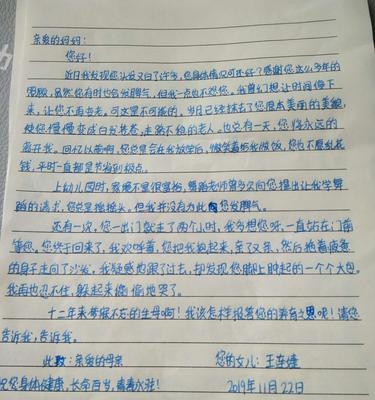 亲爱的妈妈：
您好！
近日我发现您头发又白了许多，您身体情况可还好？感谢您这么多年的
照顾，虽然您有时也会发脾气，但我一点也不怨您。我曾幻想让时间慢下
来，让您不再老去。可这是不可能的，岁月已经抹去了您原本美丽的美貌，
使您慢慢变成白发苍苍，走路不稳的老人。也总有一天，您将永远的
离开我。回忆以前啊，您总是会在我放学后，微笑着给我做饭，您也不愿乱花
钱，平时一直都是节省到极点。
上幼儿园时，家境不是很富裕，舞蹈老师曾多次向您提出让我学舞
蹈的请求，您总是摇摇头，但我并没有为此向您发脾气。
还有一次，您一出门就走了两个小时，我多想您呀，一直站在门前
等您，您终于回来了，我欢呼着，您把我抱起来，亲了又亲，然后拖着疲惫
的身子走向了沙发，我疑惑地跟了过去，却发现您脚上肿起的一个个大包
我再也忍不住，躲起来偷偷地哭了。
十二年来劳苦不忘的生母啊！我该怎样报答您的养育之恩呢！请您
告诉我，告诉我。
此致：亲爱的母亲 您的女儿：王连
祝您身体健康，长命百岁，青春永驻！ 2019年11月22日